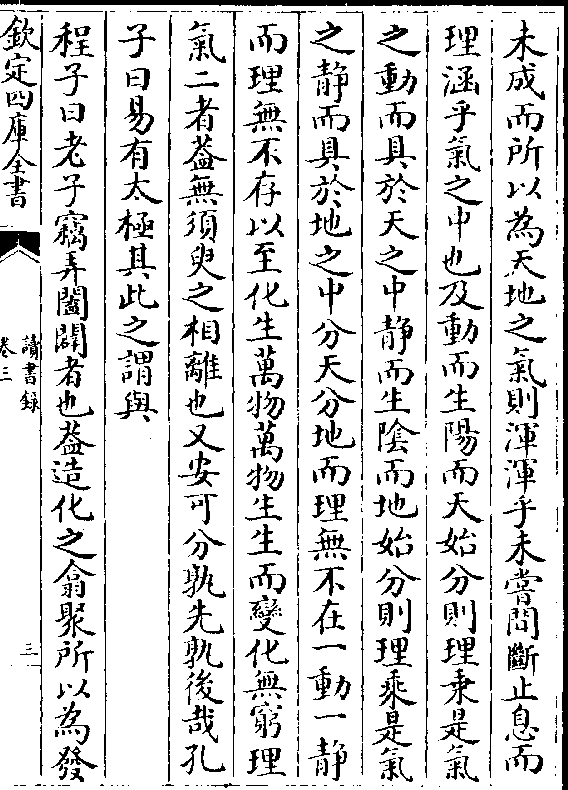 未成而所以為天地之氣則渾渾乎未嘗間斷止息而
理涵乎氣之中也及動而生陽而天始分則理乗是氣
之動而具於天之中静而生陰而地始分則理乘是氣
之静而具於地之中分天分地而理無不在一動一静
而理無不存以至化生萬物萬物生生而變化無窮理
氣二者葢無須臾之相離也又安可分孰先孰後哉孔
子曰易有太極其此之謂與
程子曰老子竊弄闔闢者也葢造化之翕聚所以為發
欽定四庫全書
讀書録
卷三
三